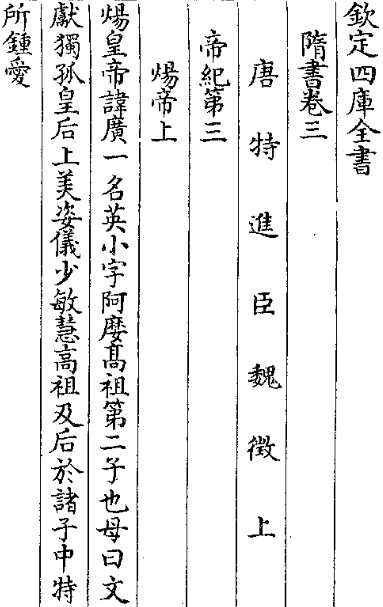 欽定四庫全書
隋書卷三
唐特進臣魏徵上
帝紀第三
煬帝上
煬皇帝諱廣一名英小字阿㦄髙祖第二子也母曰文
獻獨孤皇后上美姿儀少敏慧高祖及后於諸子中特
所鍾愛